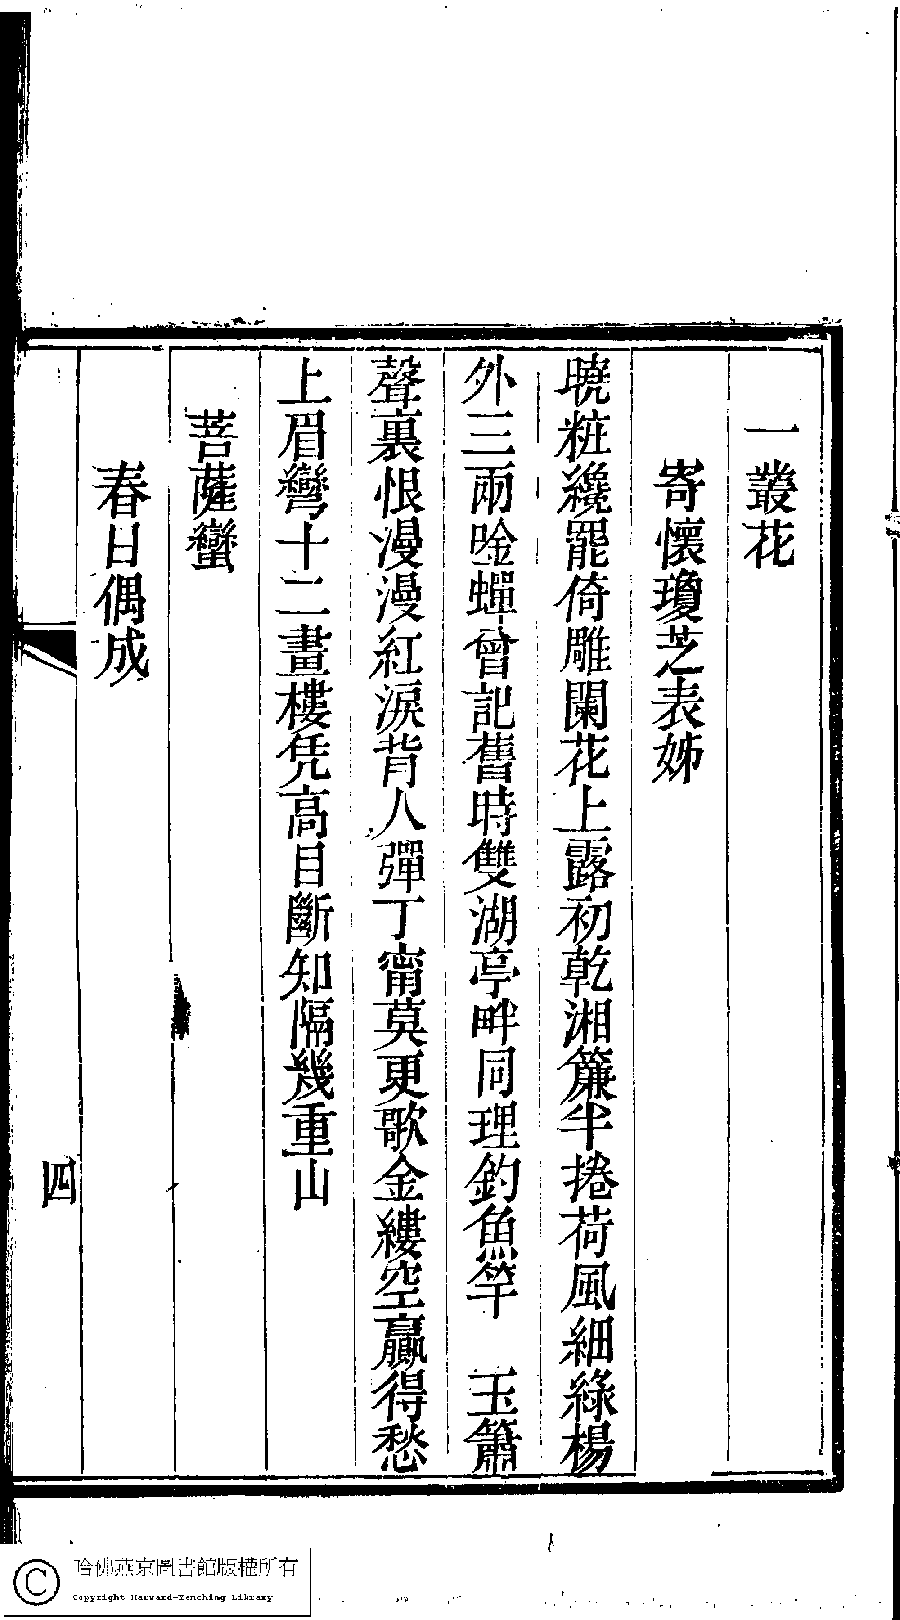 一叢花
寄懷瓊芝表姊
曉粧纔罷倚雕闌花上露初乾湘簾半捲荷風細綠楊
外三兩吟蟬曾記舊時雙湖亭畔同理釣魚竿　玉簫
聲裏恨漫漫紅淚背人彈丁甯莫更歌金縷空贏得愁
上眉彎十二畫樓凭高目斷知隔幾重山
菩薩蠻
春日偶成
四
哈佛燕京圖書館版權所有
Copyright Harvard-Yenching Library